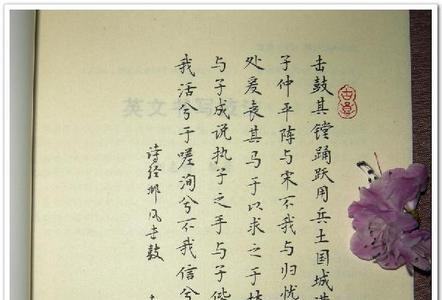 击鼓其镗踊跃用兵土国城
子仲平阵与宋不我与归忧
处爱哀其马于以求之于林
与子成说执子之手与子偕
我活兮于嗟洵兮不我信兮
诗经邶风击鼓